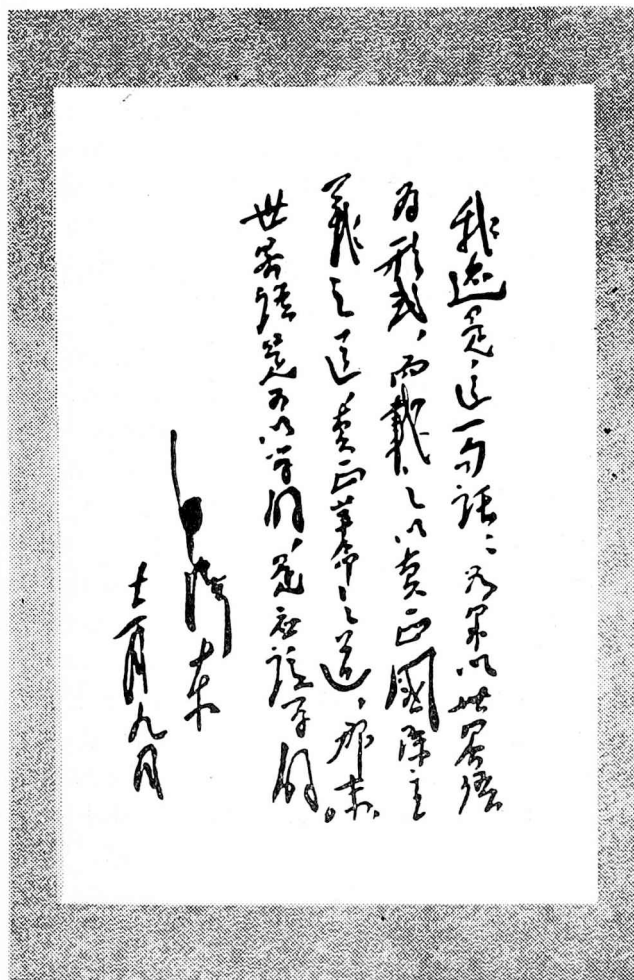 我還是這一句話：如果以世界語
为形式，而載之以真正國際主
義之道，真正革命之道，那末，
世界語是可以学的，是应該学的
毛澤东
十二月九日